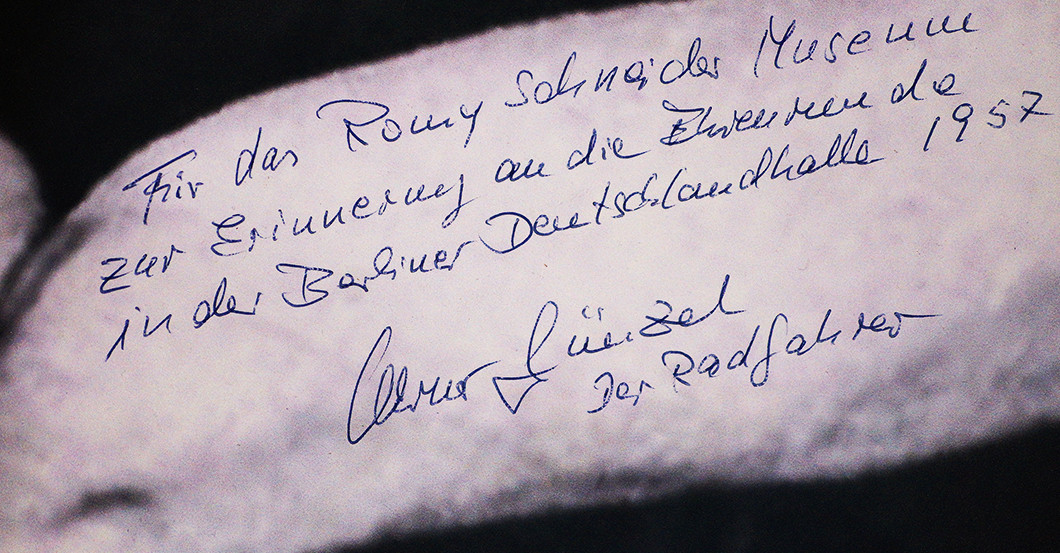 Für das Romy Schneider Museum
zur Erinnerung an die Ehrenrunde
in der Berliner Deutschlandhalle 1957
Günzel
Der Radfahrer